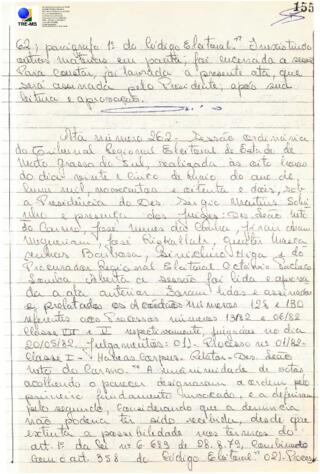 155
TRE-MS
62, parágrafo 1º do Código Eleitoral." Inexistindo
outras matérias em pauta, foi encerrada a sessão.
Para constar, foi lavrada a presente ata, que
será assinada pelo Presidente, após sua
leitura e aprovação.
Ata número 262 - Sessão ordinária
do Tribunal Regional Eleitoral do Estado de
Mato Grosso do Sul, realizada às oito horas
do dia vinte e cinco de maio do ano de
hum mil, novecentos e oitenta e dois, sob
a Presidência do Des. Sergio Martins Sobri
nho e presença dos Juízes: Des. Leão Neto
do Carmo, José Nunes da Cunha,
José Rizkallah,
Barbosa, e do
Procurador Regional Eleitoral Octávio
Aberta a sessão foi lida e aprova
da a ata anterior. Foram lidos e assinados
e prolatados os Acórdãos números 129 e 130
referentes aos Processos números 19/82 e 06/82
Classe III e V respectivamente, julgados no dia
20/05/82. Julgamentos: 01) - Processo nº 01/82-
Classe I - Habeas Corpus. Relator - Des. Leão
Neto do Carmo. "A unanimidade de votos
acolhendo o parecer denegaram a ordem pelo
primeiro fundamento invocado, e a deferiram
pelo segundo, considerando que a denúncia
não poderia ter sido recebida, desde que
extinta a punibilidade nos termos do
art. 1º da Lei nº 6.683 de 28.8.79, combinado
com o art. 358 do Código Eleitoral." 02) - Proces